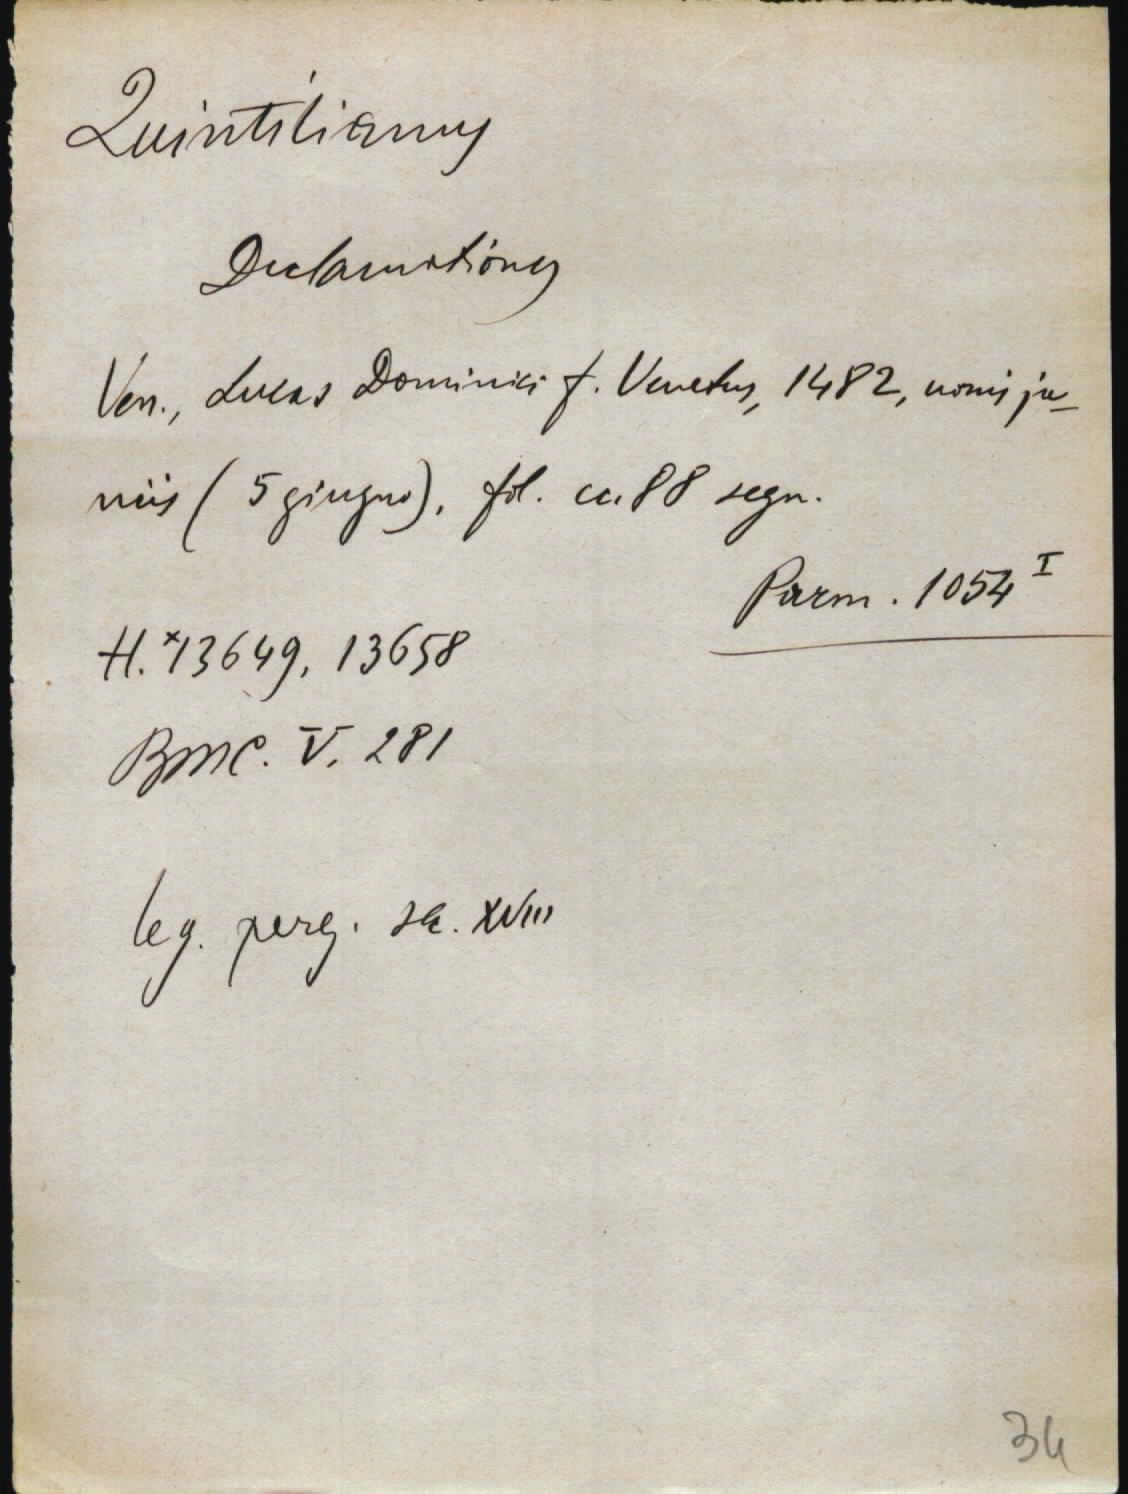 Quintilianus
Declamationes
Ven., Lucas Dominici f. Venetus, 1482, nonis ju-
niis (5 giugno), fol. cc. 88 segn.
Parm. 1054 I
H. *13649, 13658
BMC. V. 281
leg. perg. sec. XVIII
34